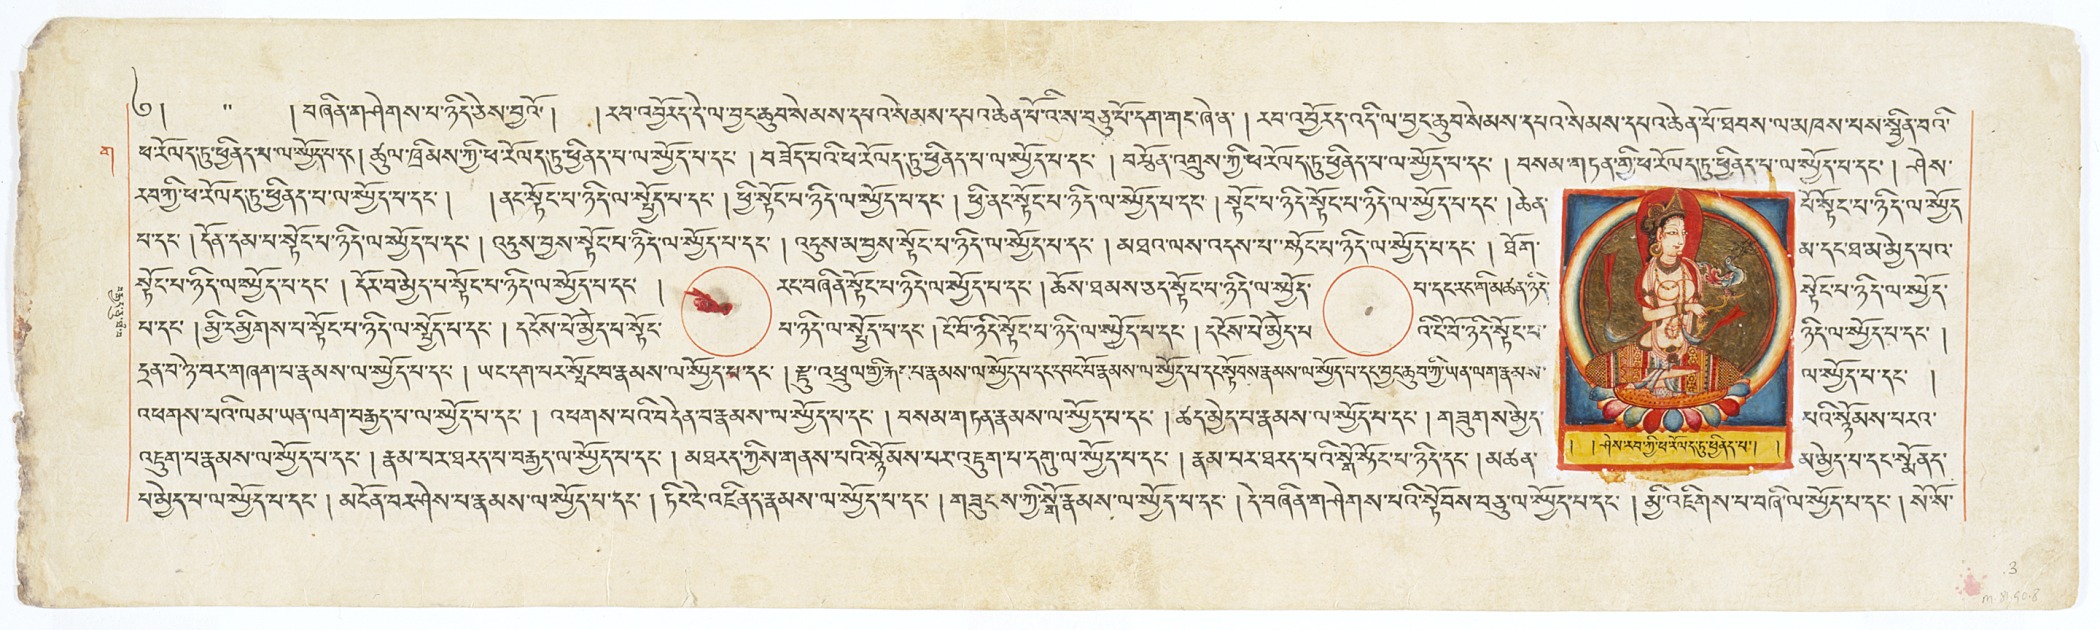 ༄། ། བཞིན་གཤེགས་པ་ཉིད་ཅེས་བྱའོ། །རབ་འབྱོརད་དེ་ལ་བྱང་ཆུབ་སེམས་དཔའ་སེམས་དཔའ་ཆེན་པོའི་ས་བཅུ་པོ་དག་གང་ཞེ་ན། རབ་འབྱོརད་འདི་ལ་བྱང་ཆུབ་སེམས་དཔའ་སེམས་དཔའ་ཆེན་པོ་ཐབས་ལ་མཁས་པས་སྦྱིན་བའི་
ཕ་རོལད་ཏུ་ཕྱིནད་པ་ལ་སྤྱོད་པ་དང། ཚུལ་ཁྲིམས་ཀྱི་ཕ་རོལད་ཏུ་ཕྱིནད་པ་ལ་སྤྱོད་པ་དང་། བཟོད་པའི་ཕ་རོལད་ཏུ་ཕྱིནད་པ་ལ་སྤྱོད་པ་དང་། བརྩོན་འགྲུས་ཀྱི་ཕ་རོལད་ཏུ་ཕྱིནད་པ་ལ་སྤྱོད་པ་དང་། བསམ་གཏན་གྱི་ཕ་རོལད་ཏུ་ཕྱིནད་པ་ལ་སྤྱོད་པ་དང་། ཤེས་
རབ་ཀྱི་ཕ་རོལད་ཏུ་ཕྱིནད་པ་ལ་སྤྱོད་པ་དང་། །ནང་སྟོང་པ་ཉིད་ལ་སྤྱོད་པ་དང་། ཕྱི་སྟོང་པ་ཉིད་ལ་སྤྱོད་པ་དང་། ཕྱི་ནང་སྟོང་པ་ཉིད་ལ་སྤྱོད་པ་དང་། སྟོང་པ་ཉིད་སྟོང་པ་ཉིད་ལ་སྤྱོད་པ་དང་། ཆེན་པོ་སྟོང་པ་ཉིད་ལ་སྤྱོད་
པ་དང་། དོན་དམ་པ་སྟོང་པ་ཉིད་ལ་སྤྱོད་པ་དང་། འདུས་བྱས་སྟོང་པ་ཉིད་ལ་སྤྱོད་པ་དང་། འདུས་མ་བྱས་སྟོང་པ་ཉིད་ལ་སྤྱོད་པ་དང་། མཐའ་ལས་འདས་པ་སྟོང་པ་ཉིད་ལ་སྤྱོད་པ་དང་། ཐོག་མ་དང་ཐ་མ་མྱེད་པའ་
སྟོང་པ་ཉིད་ལ་སྤྱོད་པ་དང་། དོར་བ་མྱེད་པ་སྟོང་པ་ཉིད་ལ་སྤྱོད་པ་དང་། རང་བཞིན་སྟོང་པ་ཉིད་ལ་སྤྱོད་པ་དང་། ཆོས་ཐམས་ཅད་སྟོང་པ་ཉིད་ལ་སྤྱོད་པ་དང་རང་གི་མཚན་ཉིད་སྟོང་པ་ཉིད་ལ་སྤྱོད་
པ་དང་། མྱི་དམིགས་པ་སྟོང་པ་ཉིད་ལ་སྤྱོད་པ་དང་། དངོས་པོ་མྱེད་པ་སྟོང་པ་ཉིད་ལ་སྤྱོད་པ་དང་། ངོ་བོ་ཉིད་སྟོང་པ་ཉིད་ལ་སྤྱོད་པ་དང་། དངོས་པོ་མྱེད་པའི་ངོ་བོ་ཉིད་སྟོང་པ་ཉིད་ལ་སྤྱོད་པ་དང་།
དྲན་བ་ཉེ་བར་གཞག་པ་རྣམས་ལ་སྤྱོད་པ་དང་། ཡང་དག་པར་སྤོང་བ་རྣམས་ལ་སྤྱོད་པ་དང་། རྫུ་འཕྲུལ་གྱི་རྐང་པ་རྣམས་ལ་སྤྱོད་པ་དང་དབང་པོ་རྣམས་ལ་སྤྱོད་པ་དང་སྟོབས་རྣམས་ལ་སྤྱོད་པ་དང་བྱང་ཆུབ་ཀྱི་ཡན་ལག་རྣམས་ལ་སྤྱོད་པ་དང་ །
འཕགས་པའི་ལམ་ཡན་ལག་བརྒྱད་པ་ལ་སྤྱོད་པ་དང་། འཕགས་པའི་བདེན་བ་རྣམས་ལ་སྤྱོད་པ་དང་། བསམ་གཏན་རྣམས་ལ་སྤྱོད་པ་དང་། ཚད་མྱེད་པ་རྣམས་ལ་སྤྱོད་པ་དང་། གཟུགས་མྱེད་པའི་སྙོམས་པརའ་
འཇུག་པ་རྣམས་ལ་སྤྱོད་པ་དང་། རྣམ་པར་ཐརད་པ་བརྒྱད་ལ་སྤྱོད་པ་དང་། མཐརད་ཀྱིས་གནས་པའི་སྙོམས་པར་འཇུག་པ་དགུ་ལ་སྤྱོད་པ་དང་། རྣམ་པར་ཐརད་པའི་སྒོ་སྟོང་པ་ཉིད་དང་། མཚན་མ་མྱེད་པ་དང་སྨོནད་
པ་མྱེད་པ་ལ་སྤྱོད་པ་དང་། མངོན་བར་ཤེས་པ་རྣམས་ལ་སྤྱོད་པ་དང་། ཏིང་ངེ་འཛིནད་རྣམས་ལ་སྤྱོད་པ་དང་། གཟུངས་ཀྱི་སྒོ་རྣམས་ལ་སྤྱོད་པ་དང་། དེ་བཞིན་གཤེགས་པའི་སྟོབས་བཅུ་ལ་སྤྱོད་པ་དང་། མྱི་འཇིགས་པ་བཞི་ལ་སྤྱོད་པ་དང་། སོ་སོ་
ག
། །ཤེས་རབ་ཀྱི་ཕ་རོལད་ཏུ་ཕྱིནད་པ། །
3
m.81.90.8